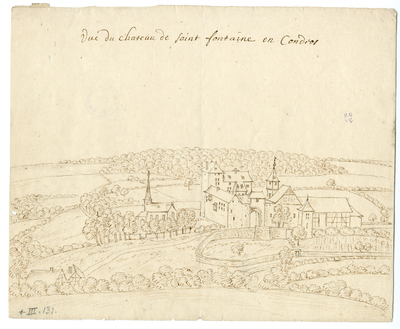 Vue du chateau de saint fontaine en Condros
+ III. 131.